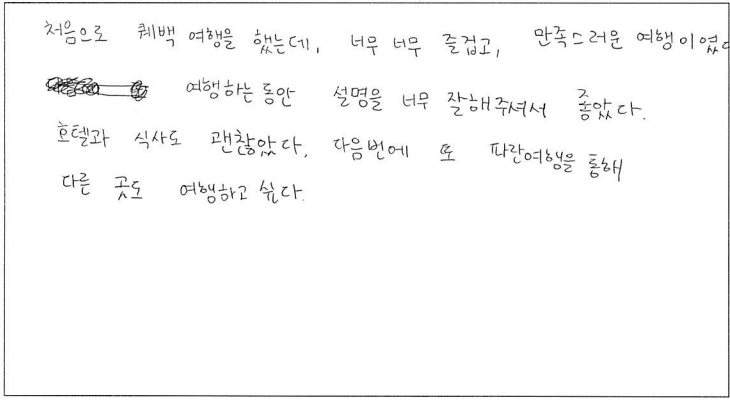 처음으로 퀘백 여행을 했는데, 너무 너무 즐겁고, 만족스러운 여행이었다
여행하는 동안 설명을 너무 잘해주셔서 좋았다.
호텔과 식사도 괜찮았다. 다음번에 또 파란여행을 통해
다른 곳도 여행하고 싶다.